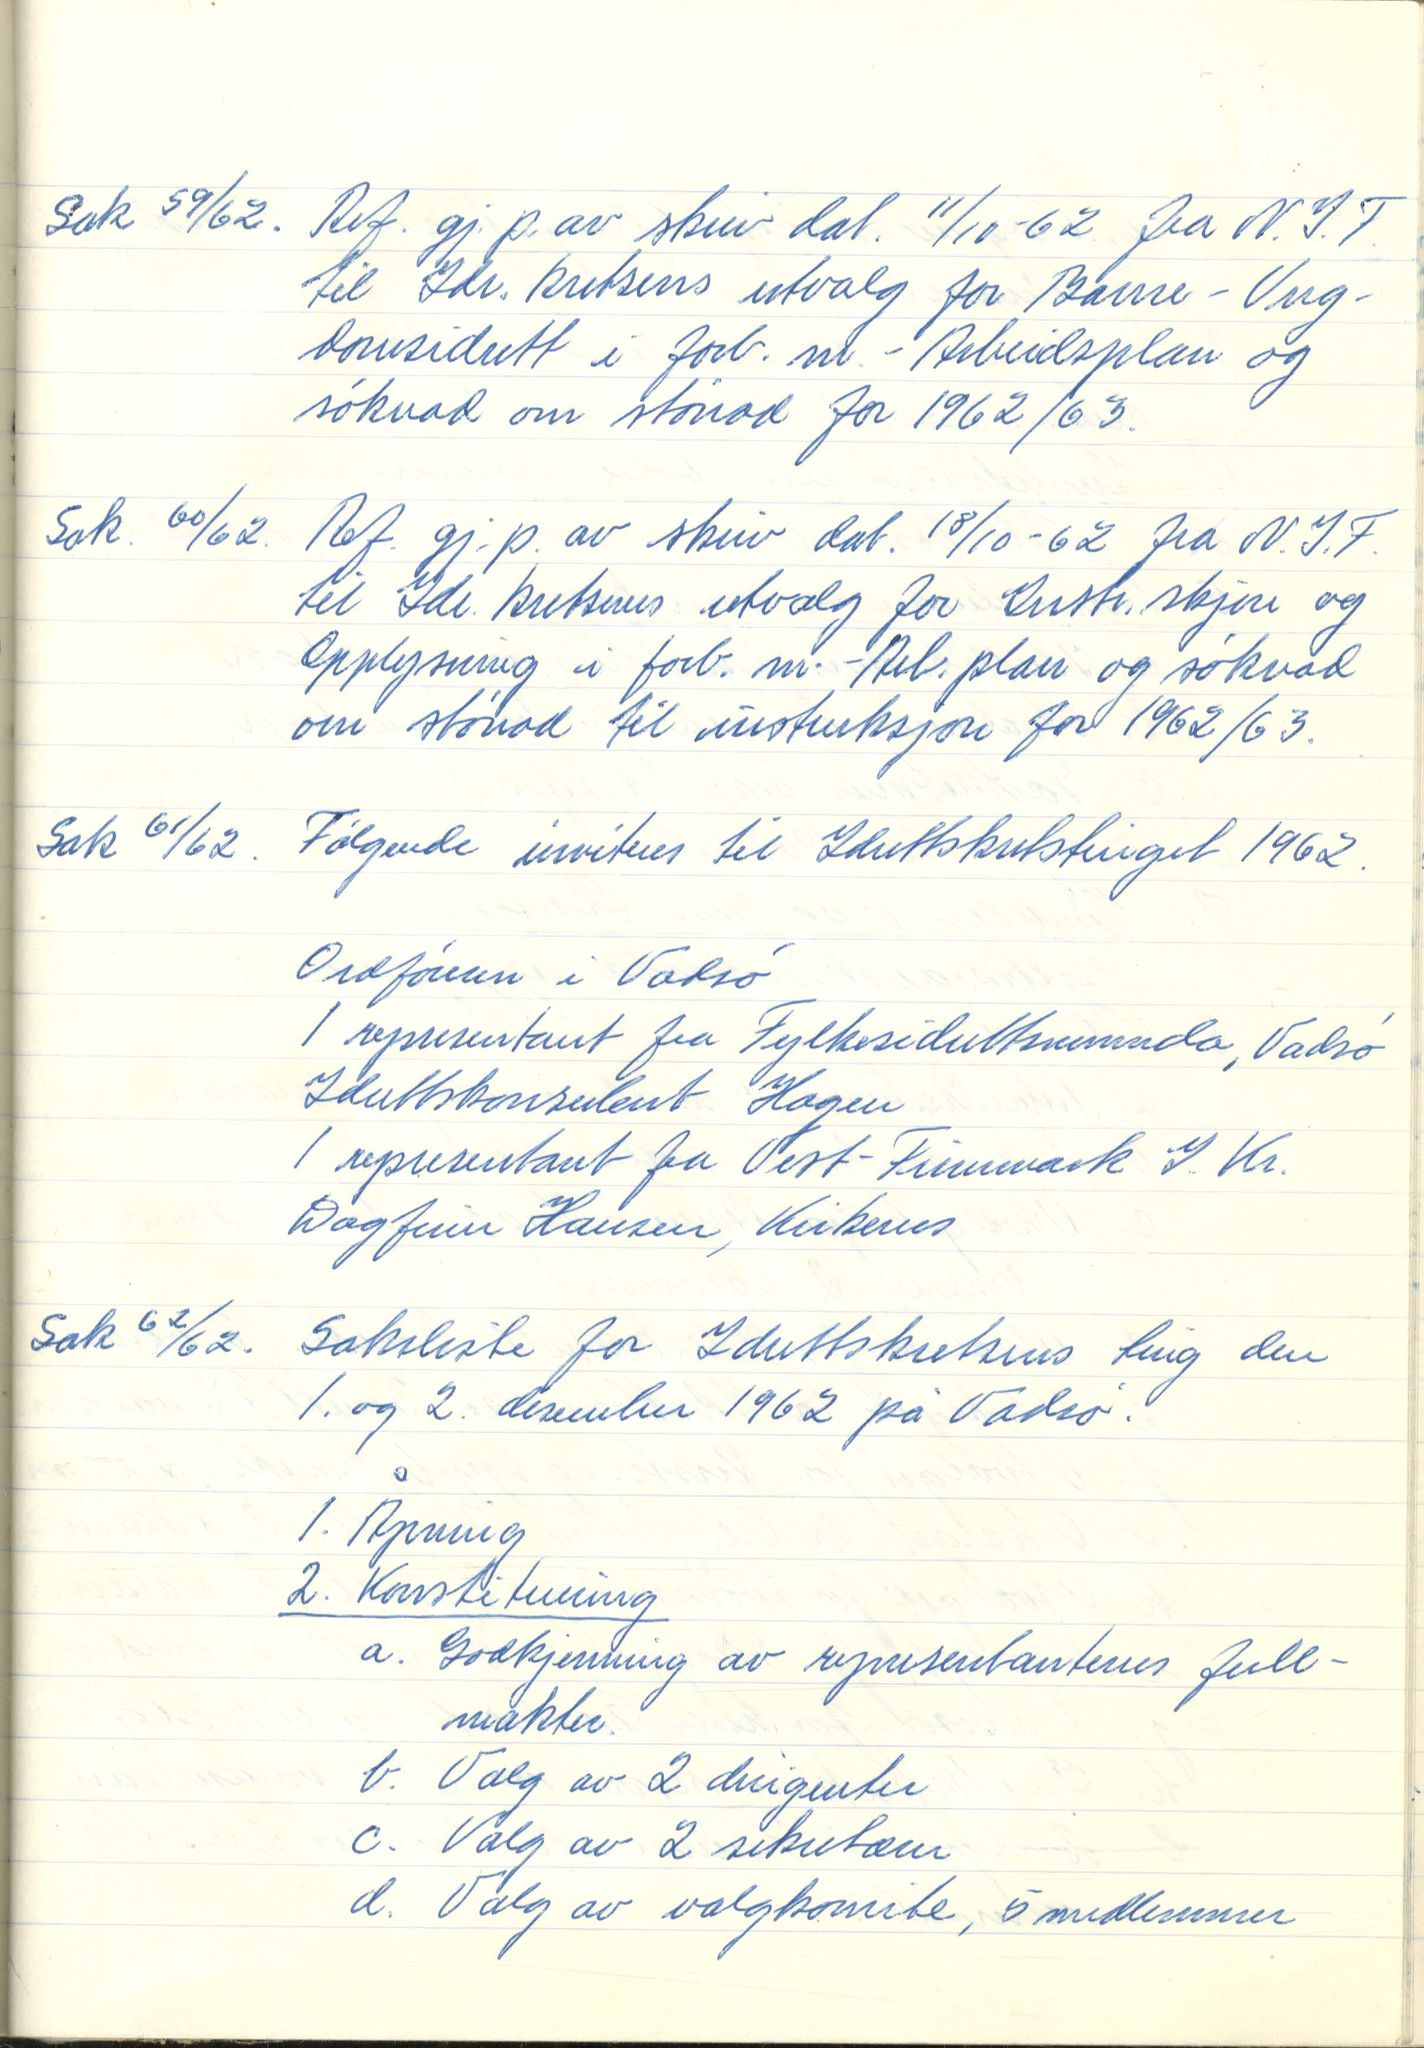 Sak 59/62. Ref. gj. p. av skriv dat. 11/10-62 fra N.I.F.
til Idr. kretsens utvalg for Barne- Ung-
domsidrett i forb. m. - Arbeidsplan og
søknad om stønad for 1962/63.
Sak. 60/62. Ref. gj. p. av skriv dat. 18/10-62 fra N.I.F.
til Idr. kretsenes utvalg for Instr. skjon og
Opplysning i forb. m. - Arb. plan og søknad
om stønad til instruksjon for 1962/63.
Sak 61/62. Følgende inviteres til Idrettskretstinget 1962.
Ordføreren i Vadsø
1 representant fra Fylkesidrettsnemnda, Vadsø
Idrettskonsulent Hagen
1 representant fra Vest-Finnmark I. Kr.
Dagfinn Hansen, Kirkenes
Sak 62/62. Saksliste for Idrettskretsens ting den
1. og 2. desember 1962 på Vadsø.
1. Åpning
2. Konstituering
a. Godkjenning av representantenes full-
makter.
b. Valg av 2 dirigenter
c. Valg av 2 sekretærer
d. Valg av valgkomite, 5 medlemmer